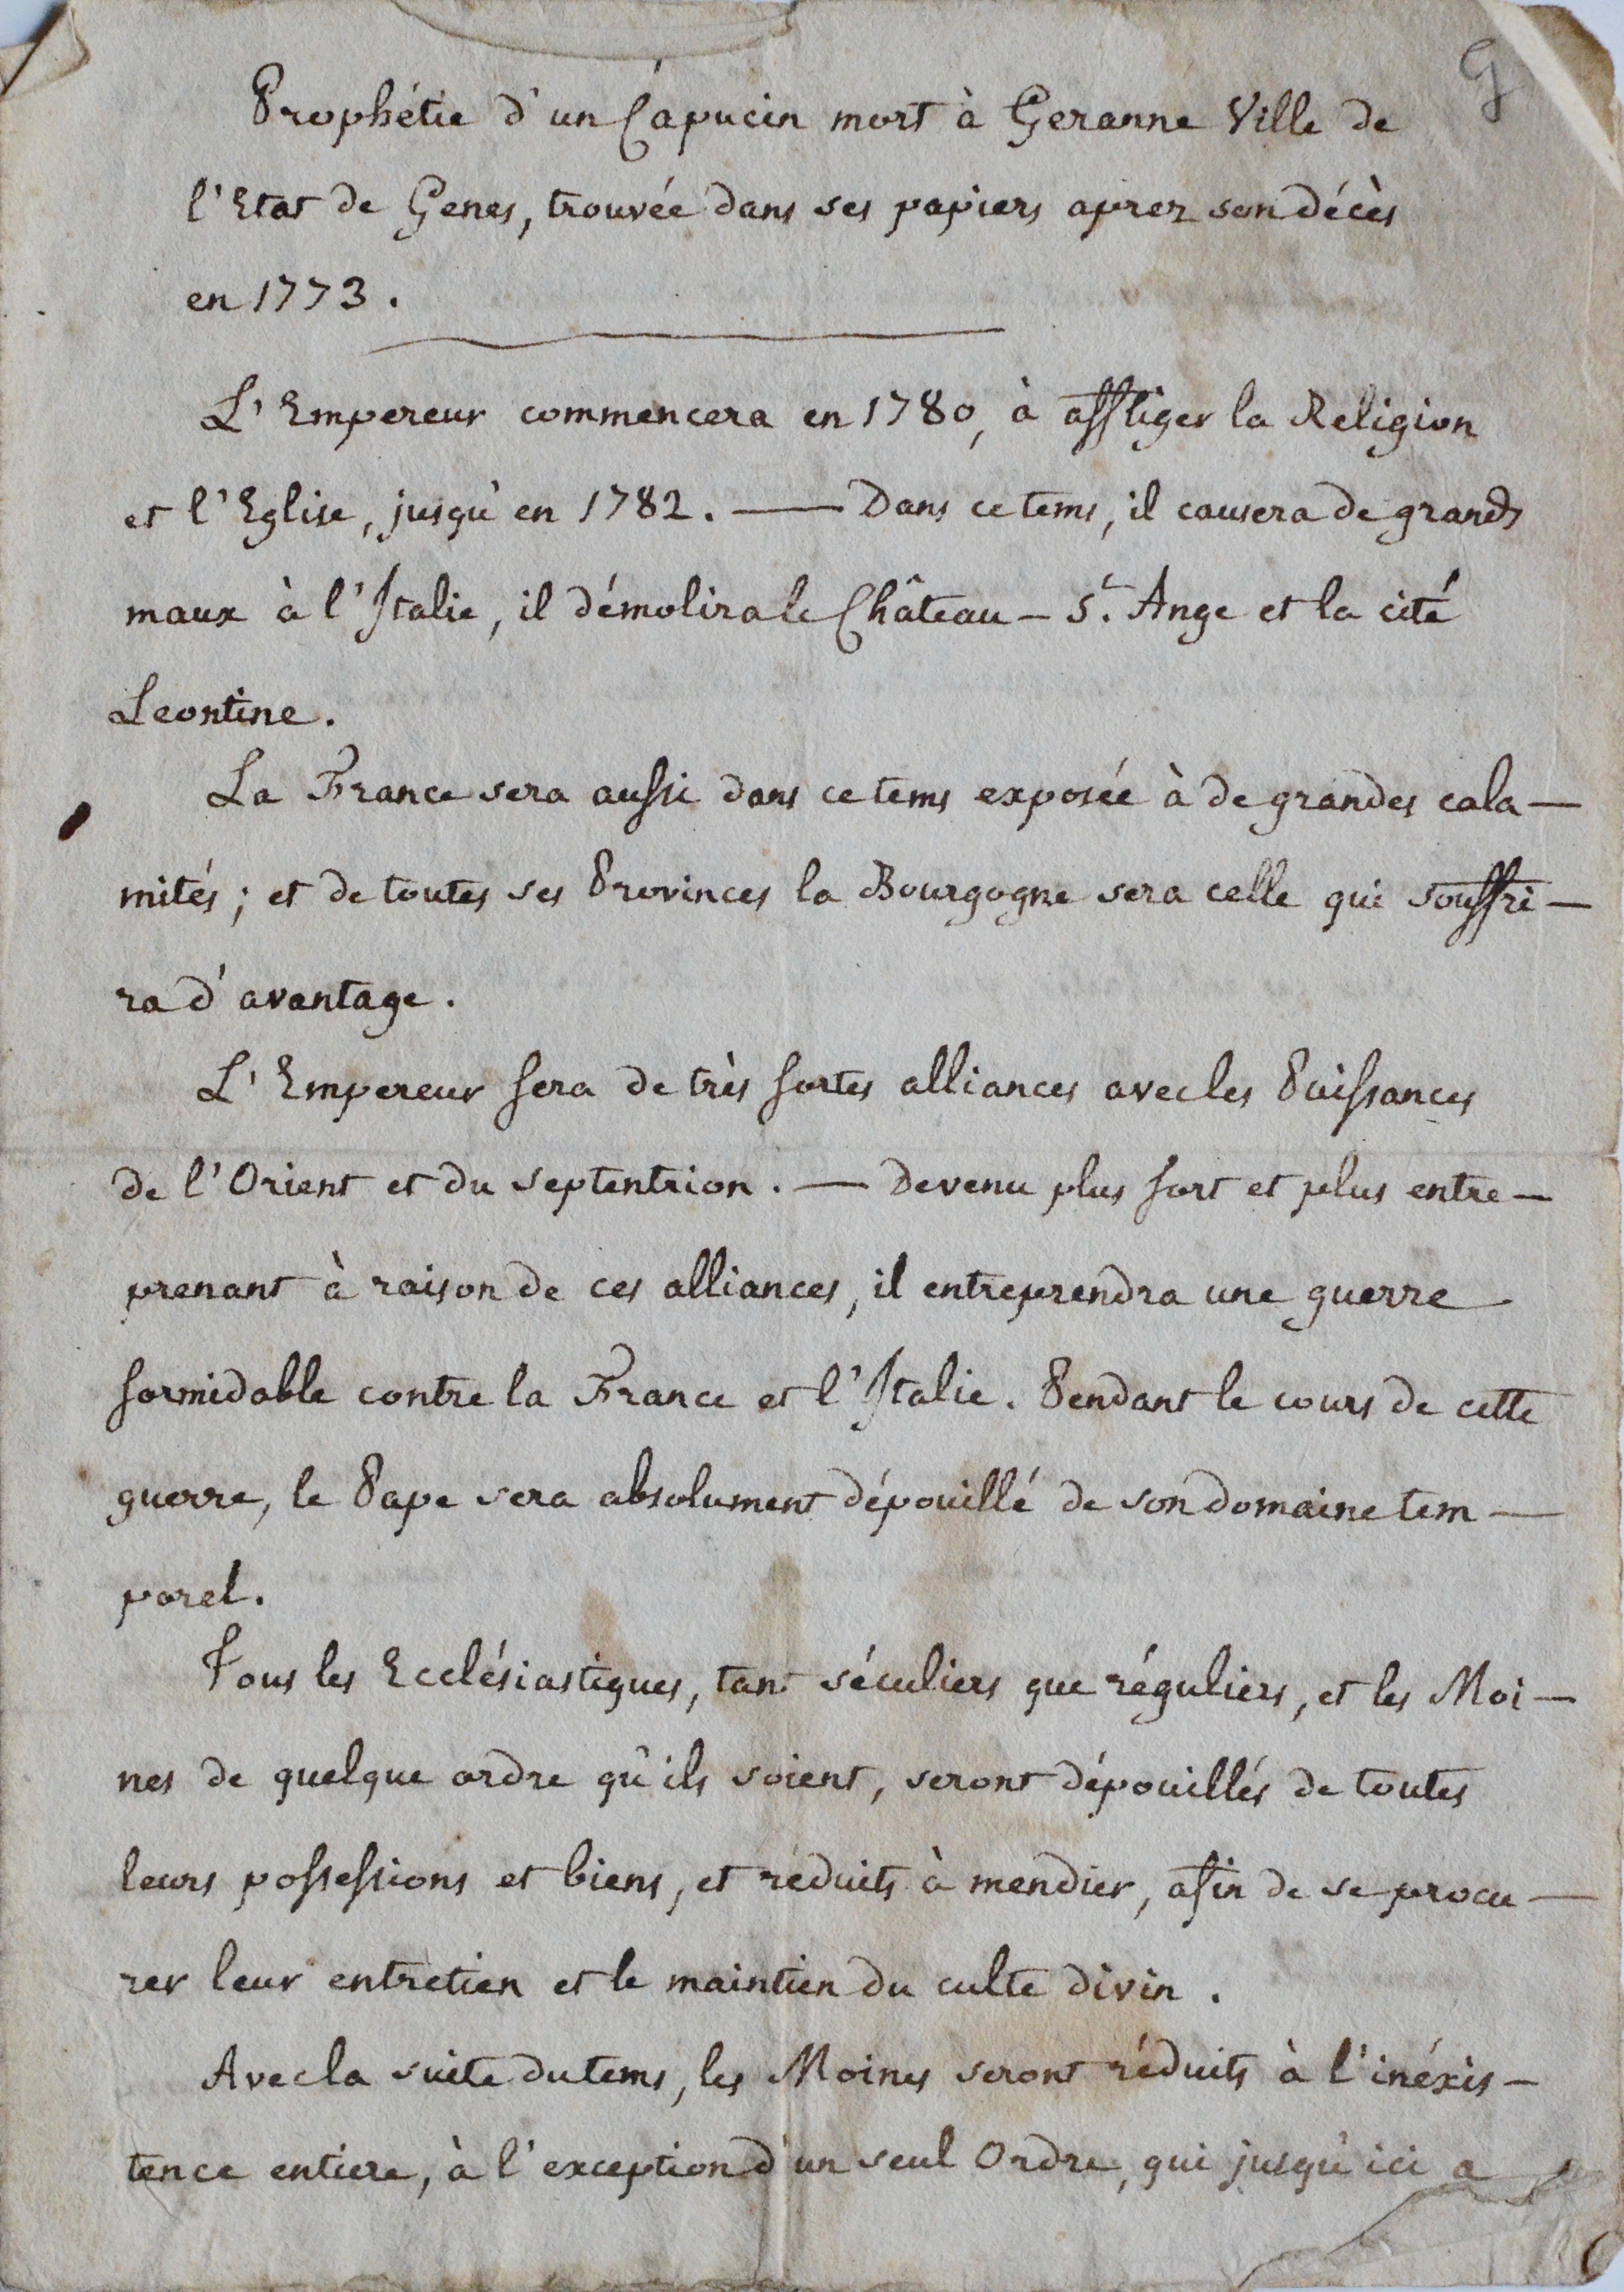 G
Prophétie d'un Capucin mort à Geranne Ville de
l'Etat de Genes, trouvée dans ses papiers aprez son décès
en 1773.
L'Empereur commencera en 1780, à affliger la Religion
et l'Eglise, jusqu'en 1782. — Dans ce tems, il causera de grands
maux à l'Italie, il démolira le Château - St. Ange et la cité
Leontine.
La France sera aussi dans ce tems exposée à de grandes cala-
mités; et de toutes ses Provinces la Bourgogne sera celle qui souffri-
ra d'avantage.
L'Empereur fera de très fortes alliances avec les Puissances
de l'Orient et du septentrion. — Devenu plus fort et plus entre-
prenant à raison de ces alliances, il entreprendra une guerre
formidable contre la France et l'Italie. Pendant le cours de cette
guerre, le Pape sera absolument dépouillé de son domaine tem-
porel.
Tous les Ecclésiastiques, tant séculiers que réguliers, et les Moi-
nes de quelque ordre qu'ils soient, seront dépouillés de toutes
leurs possessions et biens, et réduits à mendier, afin de se procu-
rer leur entretien et le maintien du culte divin.
Avec la suite du tems, les Moines seront réduits à l'inéxis-
tence entiere, à l'exception d'un seul Ordre, qui jusqu'ici a